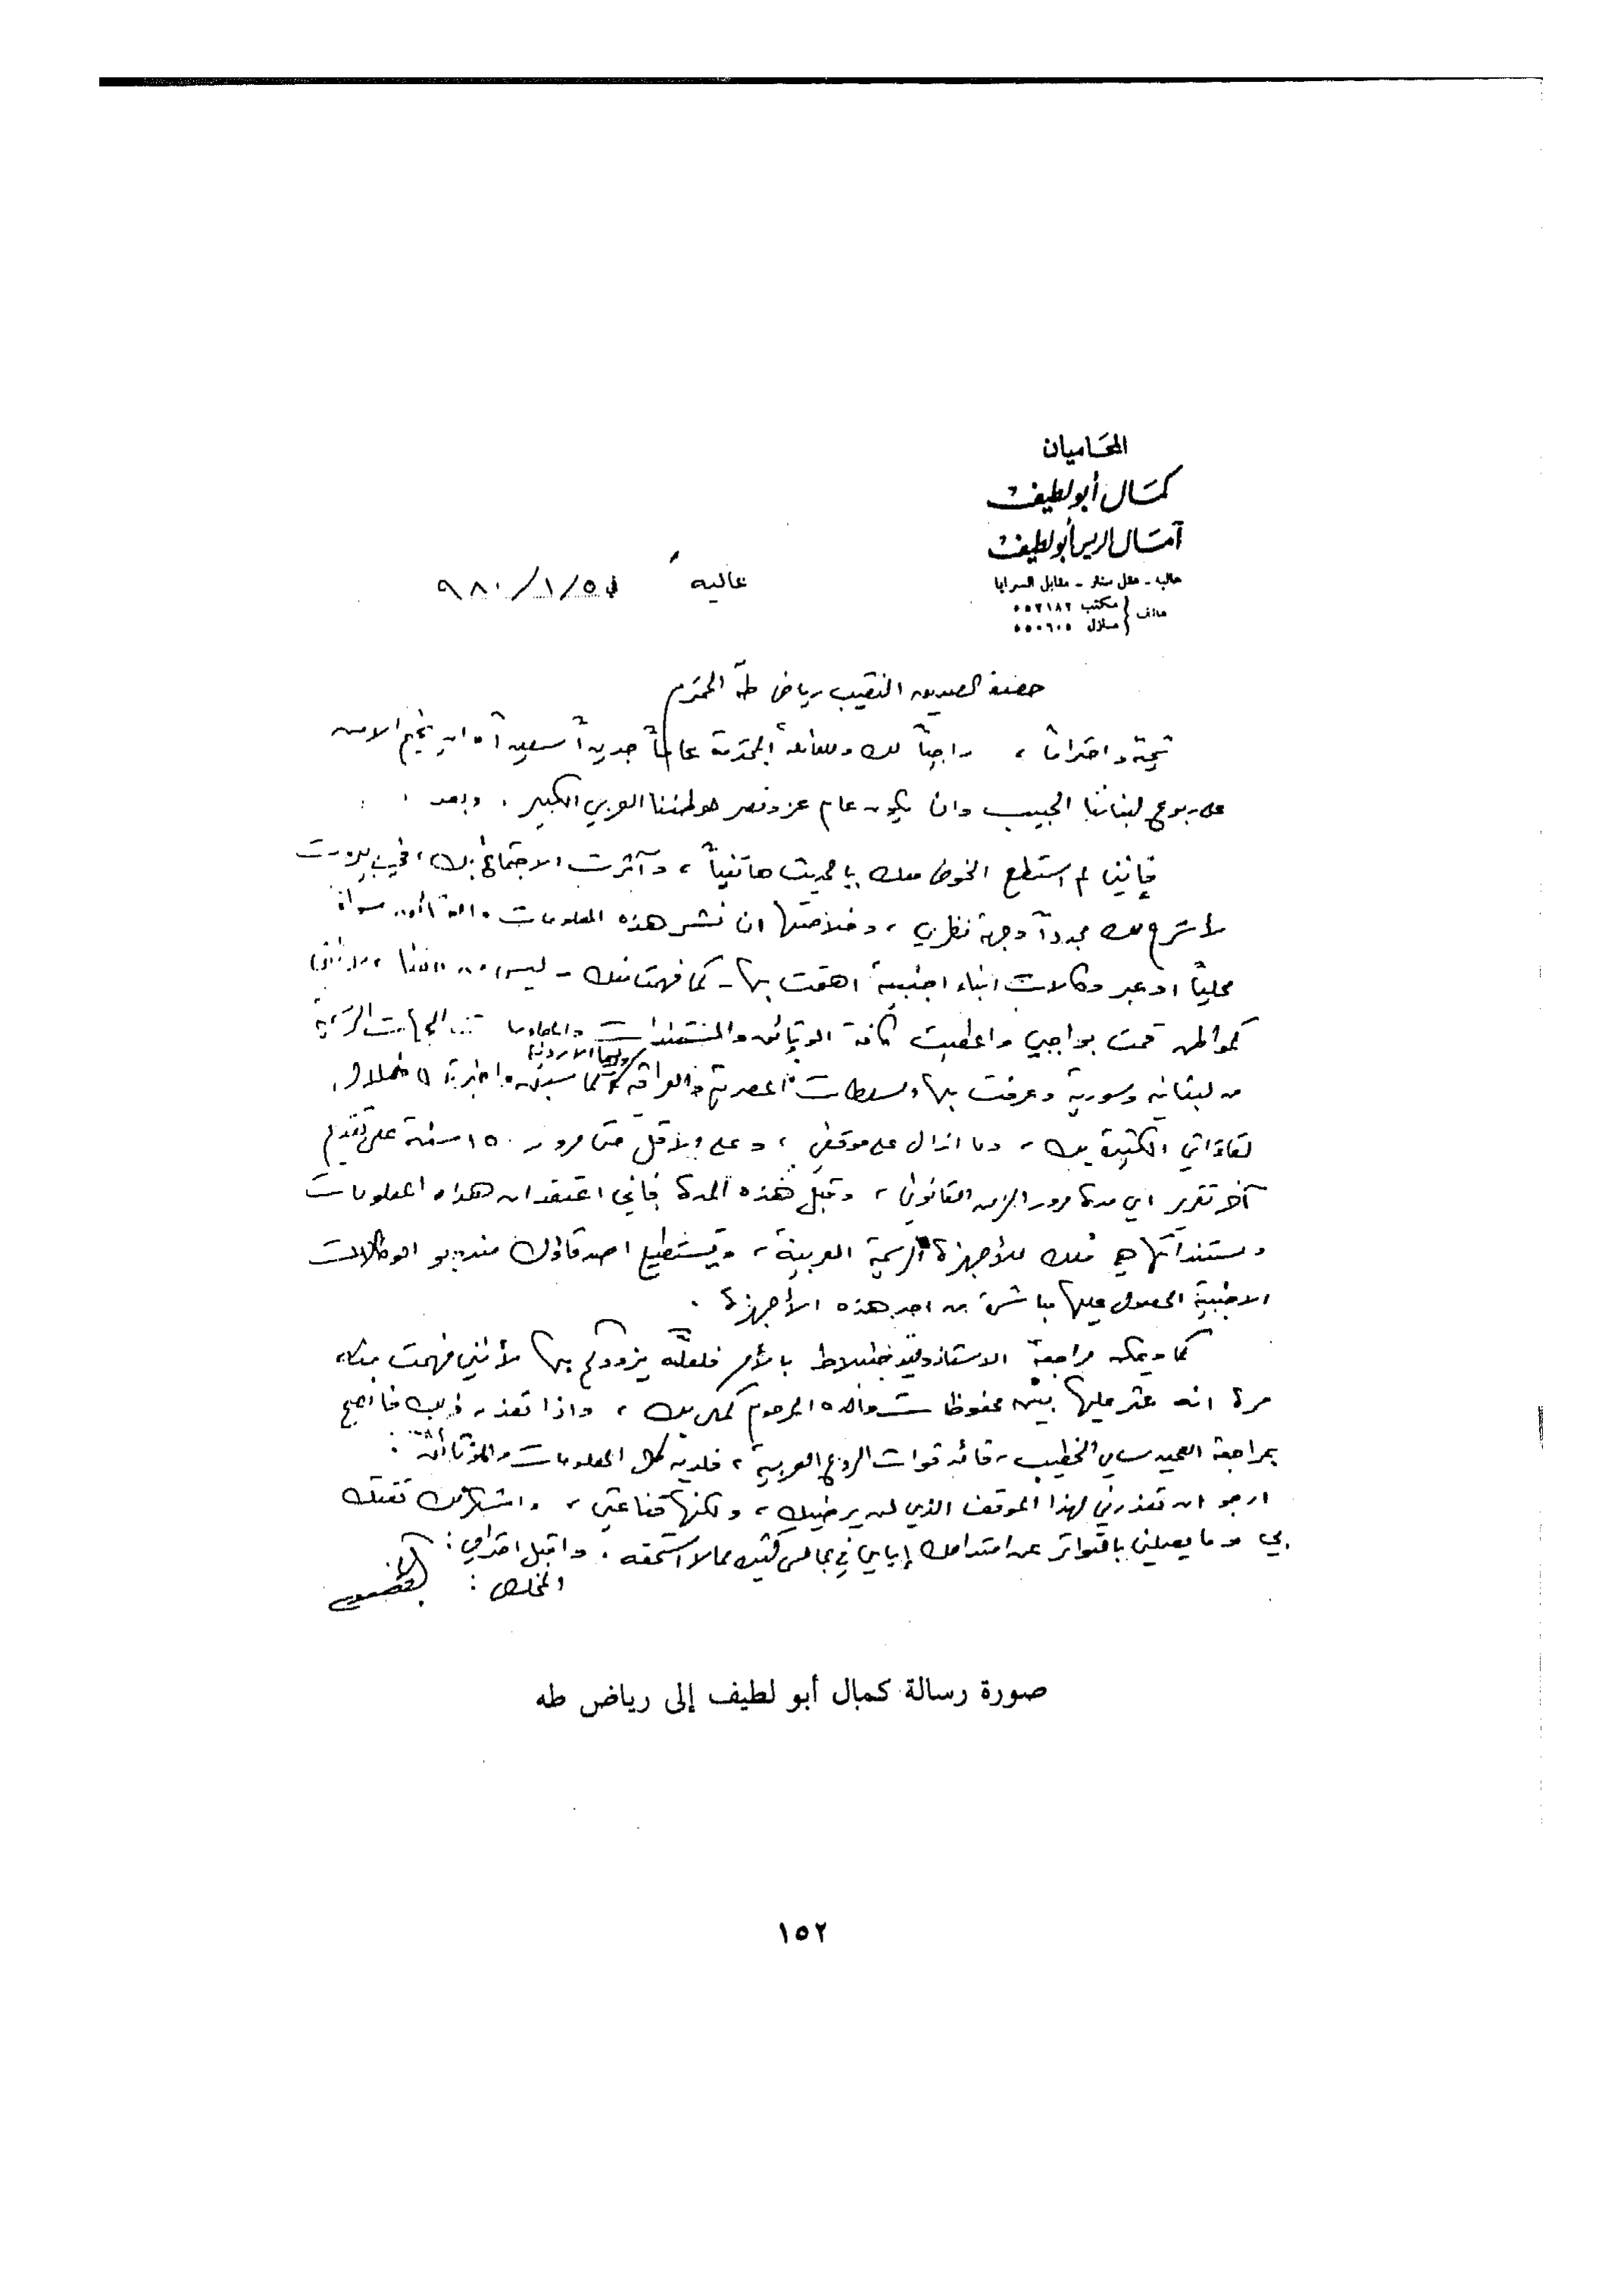 المحاميان
كمال أبو لطيف
آمال الريس أبو لطيف
عاليه - مقابل السرايا
هاتف مكتب ٥٥٢١٨٢
منزل ٥٥٠٦٠٥
عاليه في ٩٨٠/١/٥
حضرة الصديق النقيب رياض طه المحترم
تحية واحتراماً ، راجياً لك وللعائلة المحترمة عاماً جديداً سعيداً وان يخيم الامن
على ربوع لبناننا الحبيب وان يكون عام عز ونصر لوطننا العربي الكبير . وبعد ،
فإنني لم استطع الخوض معك بالحديث هاتفياً ، وآثرت الاجتماع بك في بيروت
لأشرح لك مجدداً وجهة نظري ، وخلاصتها ان نشر هذه المعلومات والوثائق سواء
محلياً او عبر وكالات انباء اجنبية اهتمت بها - كما فهمت منك - ليس من ، لأنني
كمواطن قمت بواجبي واعطيت كافة الوثائق والمستندات الجهات الرسمية
من لبنانية وسورية وعرفت بها السلطات المصرية والعراقية الاردنية كما سبق واخبرتك خلال
لقاءاتي الكثيرة بك ، وما ازال على موقفي ، وعلى الاقل حتى مرور ١٥ سنة على تقديم
آخر تقرير اي مدة مرور الزمن القانوني ، وقبل هذه المدة فإني اعتقد ان هذه المعلومات
ومستنداتها هي ملك للأجهزة الرسمية العربية ، ويستطيع اصدقاؤك مندوبو الوكالات
الاجنبية الحصول عليها مباشرة من احد هذه الأجهزة .
كما ويمكن مراجعة الاستاذ وليد جنبلاط بالأمر فلعله يزودكم بها لأنني فهمت منه
مرة انه عثر عليها بين محفوظات والده المرحوم كمال بك ، واذا تعذر ذلك فانصح
بمراجعة العميد سامي الخطيب ، قائد قوات الردع العربية ، فلديه كل المعلومات والوثائق .
ارجو ان تعذرني لهذا الموقف الذي لن يرضيك ، ولكنها قناعتي ، واشكر لك ثقتك
بي وما يصلني بالتواتر عن امتداحك إياي في مجالس كثيرة مما لا استحقه . واقبل احترامي :
المخلص :
صورة رسالة كمال أبو لطيف إلى رياض طه
١٥٢